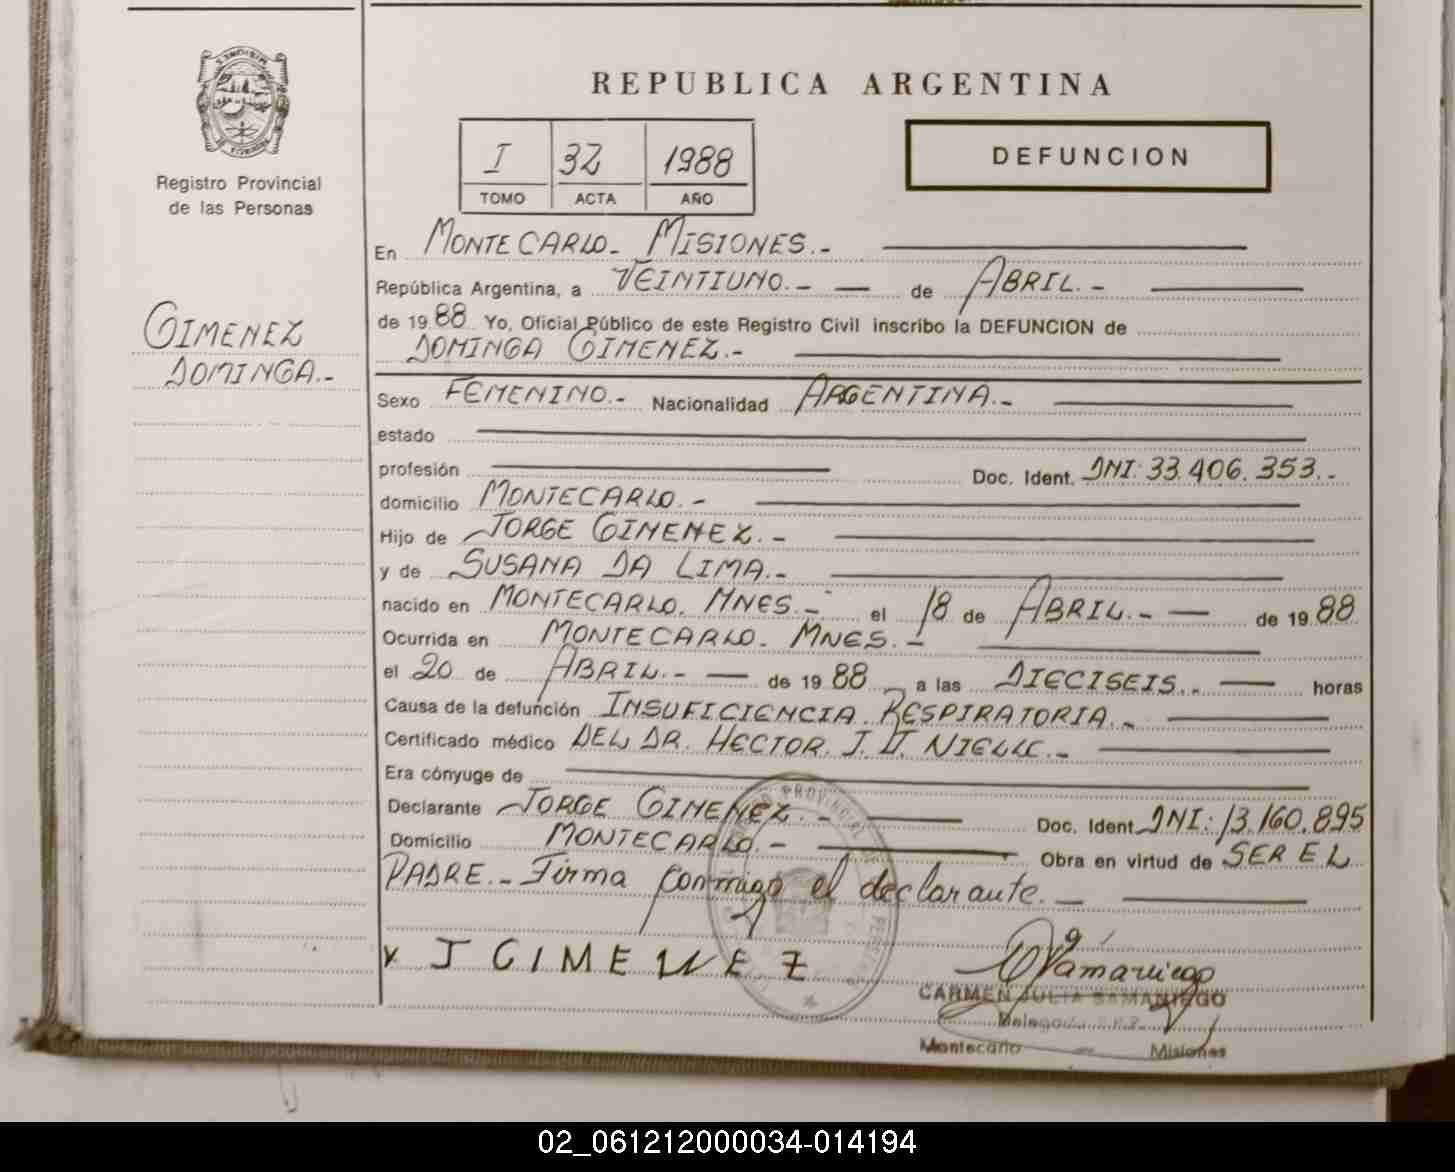 REPUBLICA ARGENTINA
I 32 1988
TOMO ACTA AÑO
DEFUNCION
Registro Provincial
de las Personas
GIMENEZ
DOMINGA.-
En MONTECARLO- MISIONES.-
República Argentina, a VEINTIUNO.- de ABRIL.-
de 1988 Yo, Oficial Público de este Registro Civil inscribo la DEFUNCION de
DOMINGA GIMENEZ.-
Sexo FEMENINO.- Nacionalidad ARGENTINA.-
estado
profesión Doc. Ident. DNI: 33.406.353.-
domicilio MONTECARLO.-
Hijo de JORGE GIMENEZ.-
y de SUSANA DA LIMA.-
nacido en MONTECARLO. MNES.- el 18 de ABRIL.- de 1988
Ocurrida en MONTECARLO- MNES.-
el 20 de ABRIL.- de 1988 a las DIECISEIS.- horas
Causa de la defunción INSUFICIENCIA RESPIRATORIA.-
Certificado médico DEL DR. HECTOR J. NIELLE.-
Era cónyuge de
Declarante JORGE GIMENEZ.- Doc. Ident. DNI: 13.160.895
Domicilio MONTECARLO.- Obra en virtud de SER EL
PADRE.- Firma conmigo el declarante.-
J GIMENEZ
Samaniego
CARMEN JULIA SAMANIEGO
Montecarlo Misiones
02_061212000034-014194